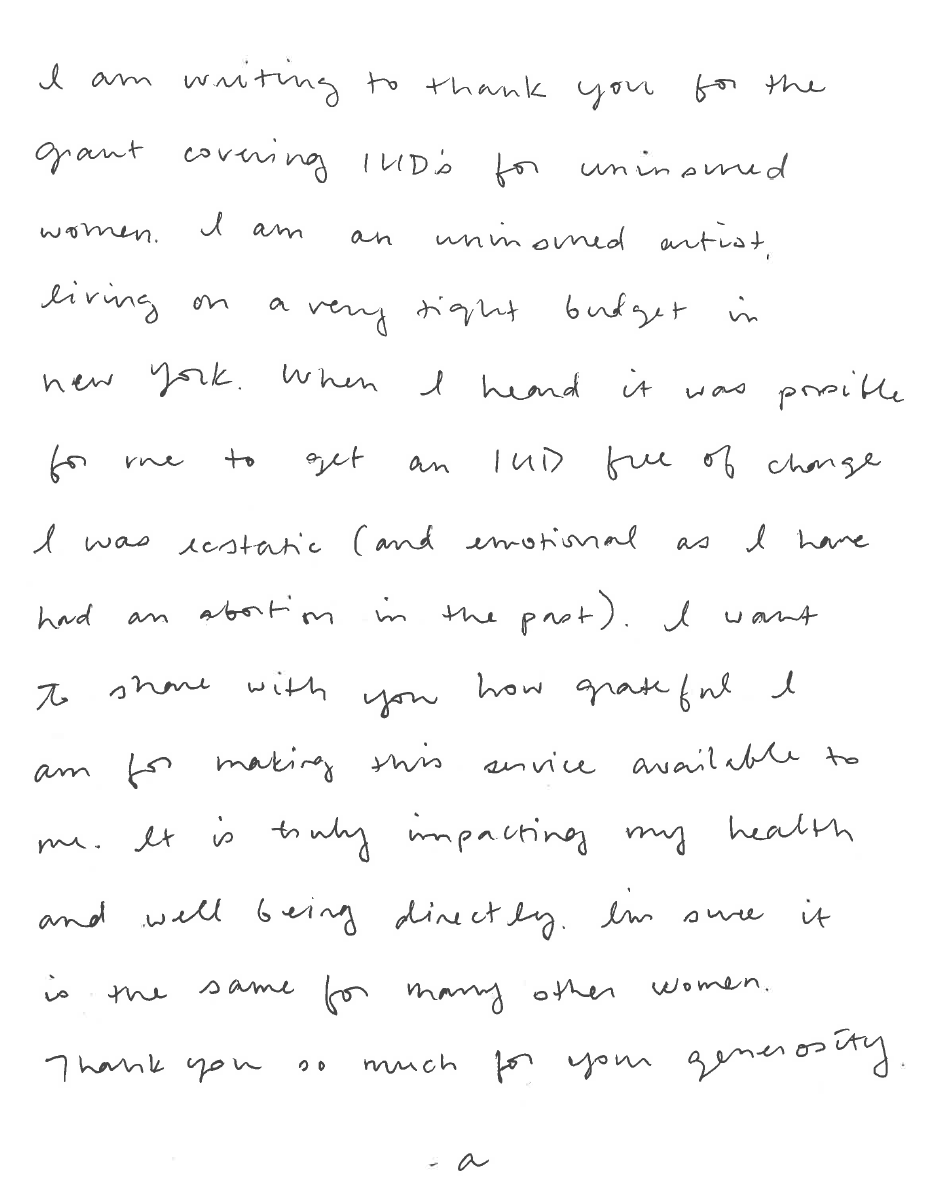 I am writing to thank you for the
grant covering IUD's for uninsured
women. I am an uninsured artist,
living on a very tight budget in
new york. When I heard it was possible
for me to get an IUD free of charge
I was ecstatic (and emotional as I have
had an abortion in the past). I want
to share with you how grateful I
am for making this service available to
me. It is truly impacting my health
and well being directly. I'm sure it
is the same for many other women.
Thank you so much for your generosity.
- a